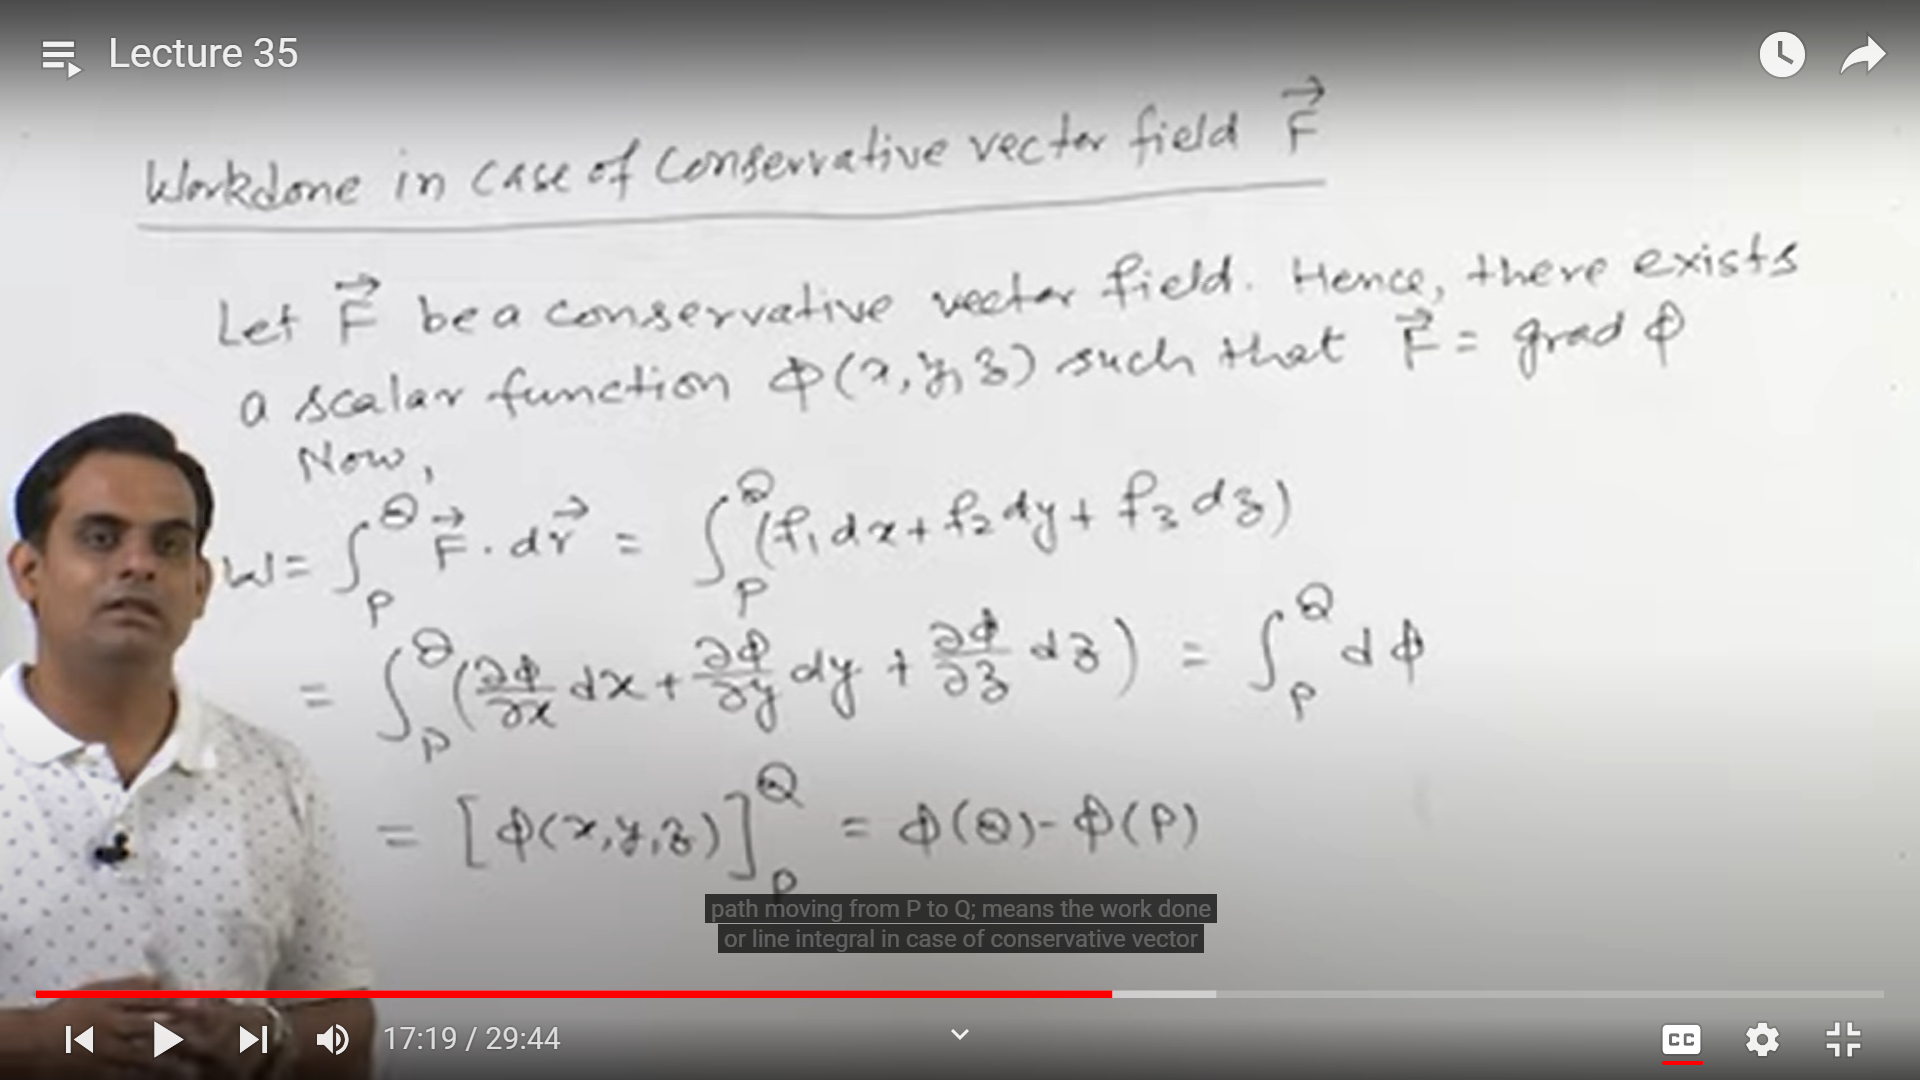 Lecture 35
Workdone in case of conservative vector field F⃗
Let F⃗ be a conservative vector field. Hence, there exists
a scalar function Φ(x, y, z) such that F⃗ = grad Φ
Now,
W = ∫_P^Q F⃗ . dr⃗ = ∫_P^Q (f₁dx + f₂dy + f₃dz)
= ∫_P^Q (∂Φ/∂x dx + ∂Φ/∂y dy + ∂Φ/∂z dz) = ∫_P^Q dΦ
= [Φ(x,y,z)]_P^Q = Φ(Q) - Φ(P)
path moving from P to Q; means the work done
or line integral in case of conservative vector
17:19 / 29:44
CC